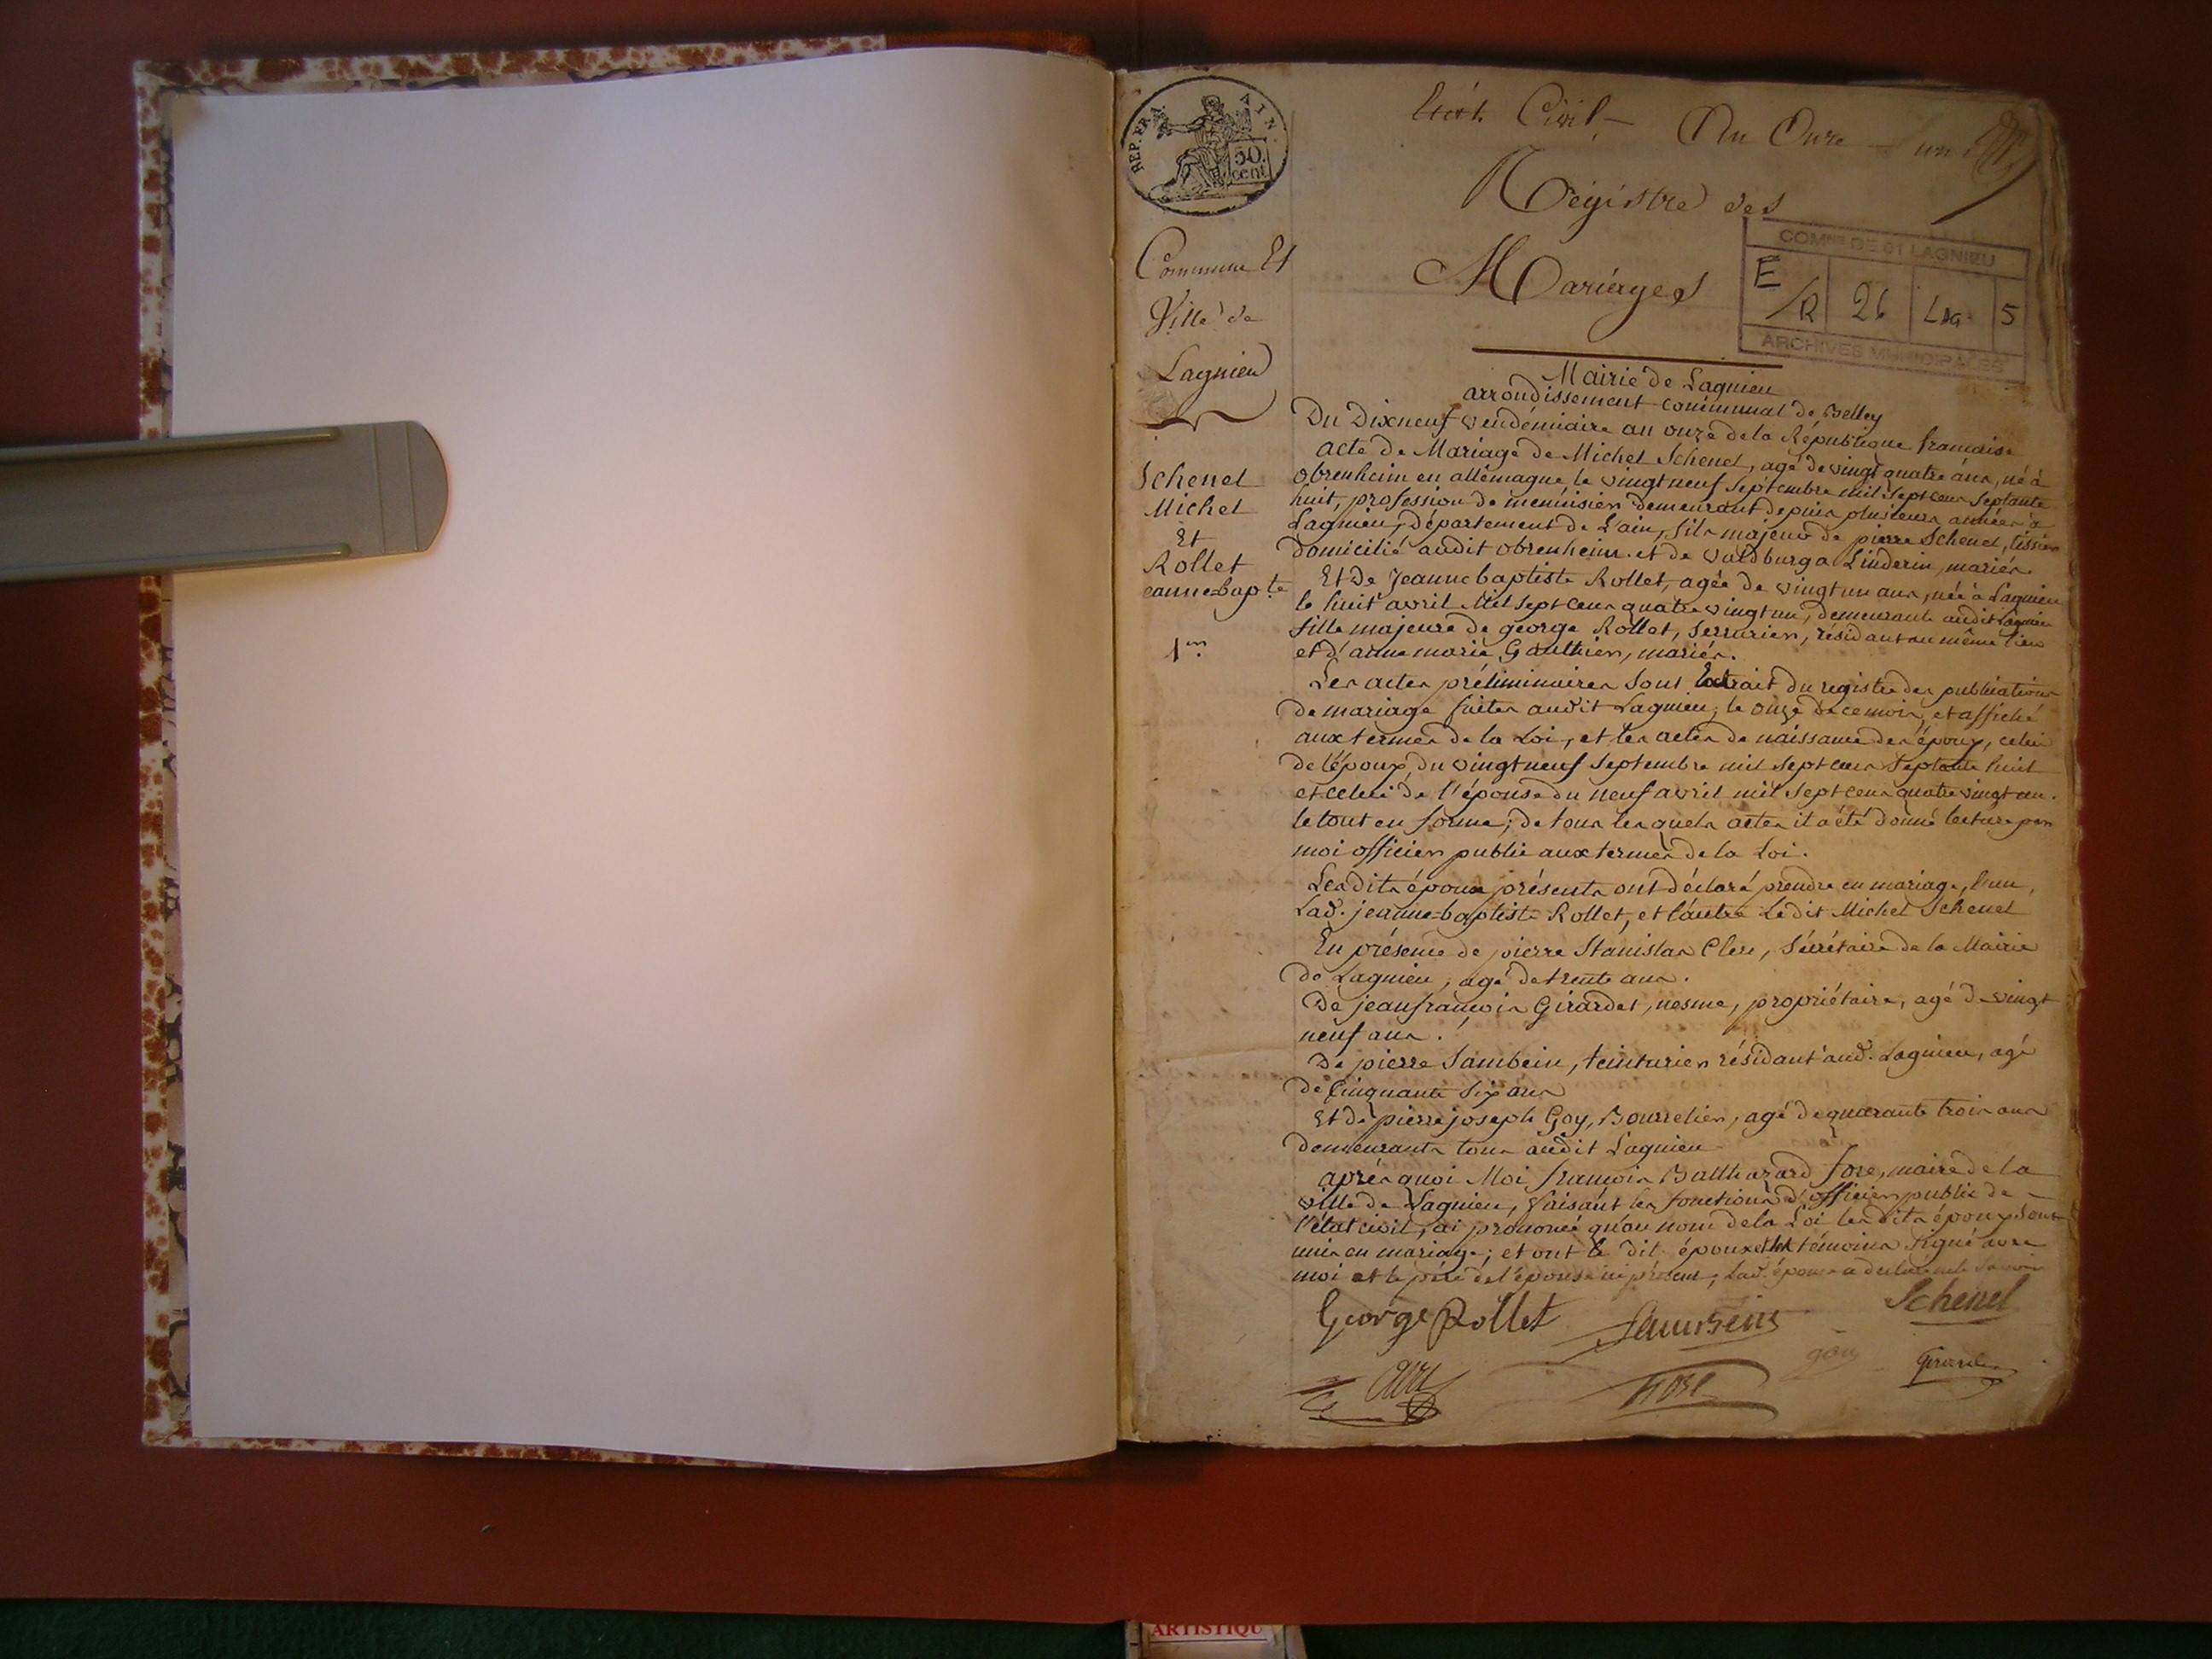 REP. FRA. AIN.
50.
cent
Etat Civil - An Onze - un
Régistre des
Mariages
COMNE DE 01 LAGNIEU
E/R 26 Lag. 5
ARCHIVES MUNICIPALES
Commune Et
Ville de
Lagnieu
Schenel
Michel
Et
Rollet
eanne=bapte
1er
Mairie de Lagnieu
arrondissement communal de Belley
Du Dixneuf vendémiaire an onze de la République francaise
acte de Mariage de Michel Schenel, agé de vingt quatre ans, né à
obrenheim en allemagne, le vingt neuf Septembre mil sept cens septante
huit, profession de menuisier demeurant depuis plusieurs années à
Lagnieu, département de L'ain, fils majeur de pierre Schenel, tissier
domicilié audit obrenheim. et de Waldburga Linderin, mariés.
Et De Jeanne baptiste Rollet, agée de vingt un ans, née à Lagnieu
le huit avril Mil sept cens quatre vingt un, demeurante audit Lagnieu
fille majeure de george Rollet, Serrurier, résidant au même lieu
et d'anne marie Gaulthier, mariés.
Les actes préliminaires sont Extrait du registre des publications
de mariage faites audit Lagnieu, le onze de ce mois, et affiché
aux termes de la Loi, et les actes de naissance des époux, celui
de l'époux, du vingt neuf Septembre mil sept cens septante huit
et celui de l'épouse du neuf avril mil sept cens quatre vingt un.
le tout en forme; de tous les quels actes il a été donné lecture par
moi officier public aux termes de la Loi.
Lesdits époux présents ont déclaré prendre en mariage, l'un,
Lad. jeanne=baptiste Rollet, et l'autre Ledit Michel Schenel
En présence de pierre Stanislas Clerc, Sécrétaire de la Mairie
de Lagnieu, agé de trente ans.
De jean françois Girardet, nesme, propriétaire, agé de vingt
neuf ans.
De pierre Sambein, teinturier résidant aud. Lagnieu, agé
de Cinquante six ans
Et de pierre joseph Goy, Bourrelier, agé de quarante trois ans
demeurants tous audit Lagnieu
après quoi Moi françois Balthazard fore, maire de la
ville de Lagnieu, faisant les fonctions d'officier public de
l'état civil, ai prononcé qu'au nom de la Loi lesdits époux sont
unis en mariage; et ont le dit époux et les témoins signé avec
moi et le père de l'épouse ici présent; lad. épouse a déclaré ne le savoir
George Rollet Schenel
goy Girardet
fore
ARTISTIQU